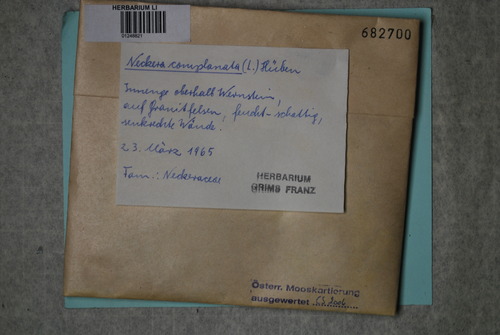 HERBARIUM LI
01248821
682700
Neckera complanata (L.) Hüben
Innenge oberhalb Wernstein,
auf Granitfelsen, feucht-schattig,
senkrechte Wände.
23. März 1965
Fam.: Neckeraceae
HERBARIUM
GRIMS FRANZ
Österr. Mooskartierung
ausgewertet